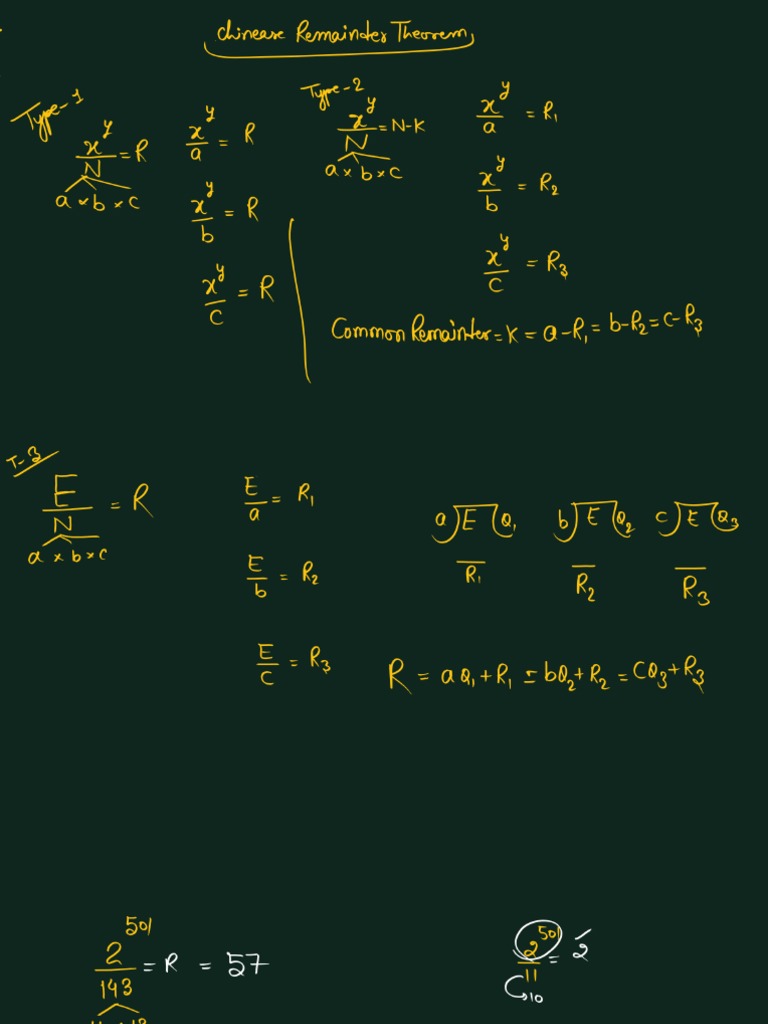 Chinease Remainder Theorem
Type-1
x^y/N = R
a × b × c
x^y/a = R
x^y/b = R
x^y/c = R
Type-2
x^y/N = N-K
a × b × c
x^y/a = R₁
x^y/b = R₂
x^y/c = R₃
Common Remainter = K = a-R₁ = b-R₂ = c-R₃
T-3
E/N = R
a × b × c
E/a = R₁
E/b = R₂
E/c = R₃
a)E(Q₁
R₁
b)E(Q₂
R₂
c)E(Q₃
R₃
R = aQ₁+R₁ = bQ₂+R₂ = CQ₃+R₃
2^501/143 = R = 57
2^501/11 = 2
10